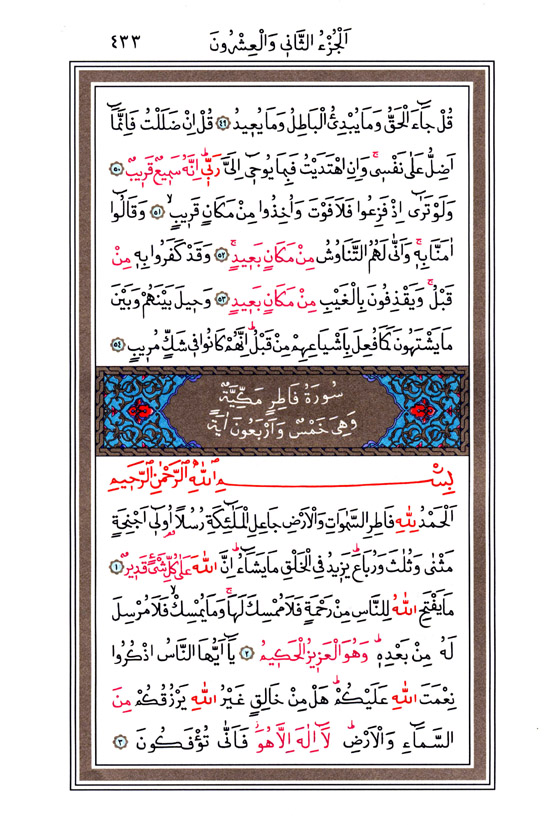 اَلْجُزْءُ الثَّانِي وَالْعِشْرُونَ ٤٣٣
قُلْ جَٓاءَ الْحَقُّ وَمَا يُبْدِئُ الْبَاطِلُ وَمَا يُعٖيدُ ﴿٤٩﴾ قُلْ اِنْ ضَلَلْتُ فَاِنَّمَٓا
اَضِلُّ عَلٰى نَفْسٖيۚ وَاِنِ اهْتَدَيْتُ فَبِمَا يُوحٖٓي اِلَيَّ رَبّٖيۜ اِنَّهُ سَمٖيعٌ قَرٖيبٌ ﴿٥٠﴾
وَلَوْ تَرٰٓى اِذْ فَزِعُوا فَلَا فَوْتَ وَاُخِذُوا مِنْ مَكَانٍ قَرٖيبٍۙ ﴿٥١﴾ وَقَالُٓوا
اٰمَنَّا بِهٖۚ وَاَنّٰى لَهُمُ التَّنَاوُشُ مِنْ مَكَانٍ بَعٖيدٍۚ ﴿٥٢﴾ وَقَدْ كَفَرُوا بِهٖ مِنْ
قَبْلُۚ وَيَقْذِفُونَ بِالْغَيْبِ مِنْ مَكَانٍ بَعٖيدٍۚ ﴿٥٣﴾ وَحٖيلَ بَيْنَهُمْ وَبَيْنَ
مَا يَشْتَهُونَ كَمَا فُعِلَ بِاَشْيَاعِهِمْ مِنْ قَبْلُۜ اِنَّهُمْ كَانُوا فٖي شَكٍّ مُرٖيبٍ ﴿٥٤﴾
سُورَةُ فَاطِرٍ مَكِّيَّةٌ
وَهِيَ خَمْسٌ وَاَرْبَعُونَ اٰيَةً
بِسْمِ اللّٰهِ الرَّحْمٰنِ الرَّحٖيمِ
اَلْحَمْدُ لِلّٰهِ فَاطِرِ السَّمٰوَاتِ وَالْاَرْضِ جَاعِلِ الْمَلٰٓئِكَةِ رُسُلًا اُو۬لٖٓي اَجْنِحَةٍ
مَثْنٰى وَثُلٰثَ وَرُبَاعَۜ يَزٖيدُ فِي الْخَلْقِ مَا يَشَٓاءُۜ اِنَّ اللّٰهَ عَلٰى كُلِّ شَيْءٍ قَدٖيرٌ ﴿١﴾
مَا يَفْتَحِ اللّٰهُ لِلنَّاسِ مِنْ رَحْمَةٍ فَلَا مُمْسِكَ لَهَاۚ وَمَا يُمْسِكْۙ فَلَا مُرْسِلَ
لَهُ مِنْ بَعْدِهٖۜ وَهُوَ الْعَزٖيزُ الْحَكٖيمُ ﴿٢﴾ يَٓا اَيُّهَا النَّاسُ اذْكُرُوا
نِعْمَتَ اللّٰهِ عَلَيْكُمْۜ هَلْ مِنْ خَالِقٍ غَيْرُ اللّٰهِ يَرْزُقُكُمْ مِنَ
السَّمَٓاءِ وَالْاَرْضِۜ لَٓا اِلٰهَ اِلَّا هُوَۘ فَاَنّٰى تُؤْفَكُونَ ﴿٣﴾